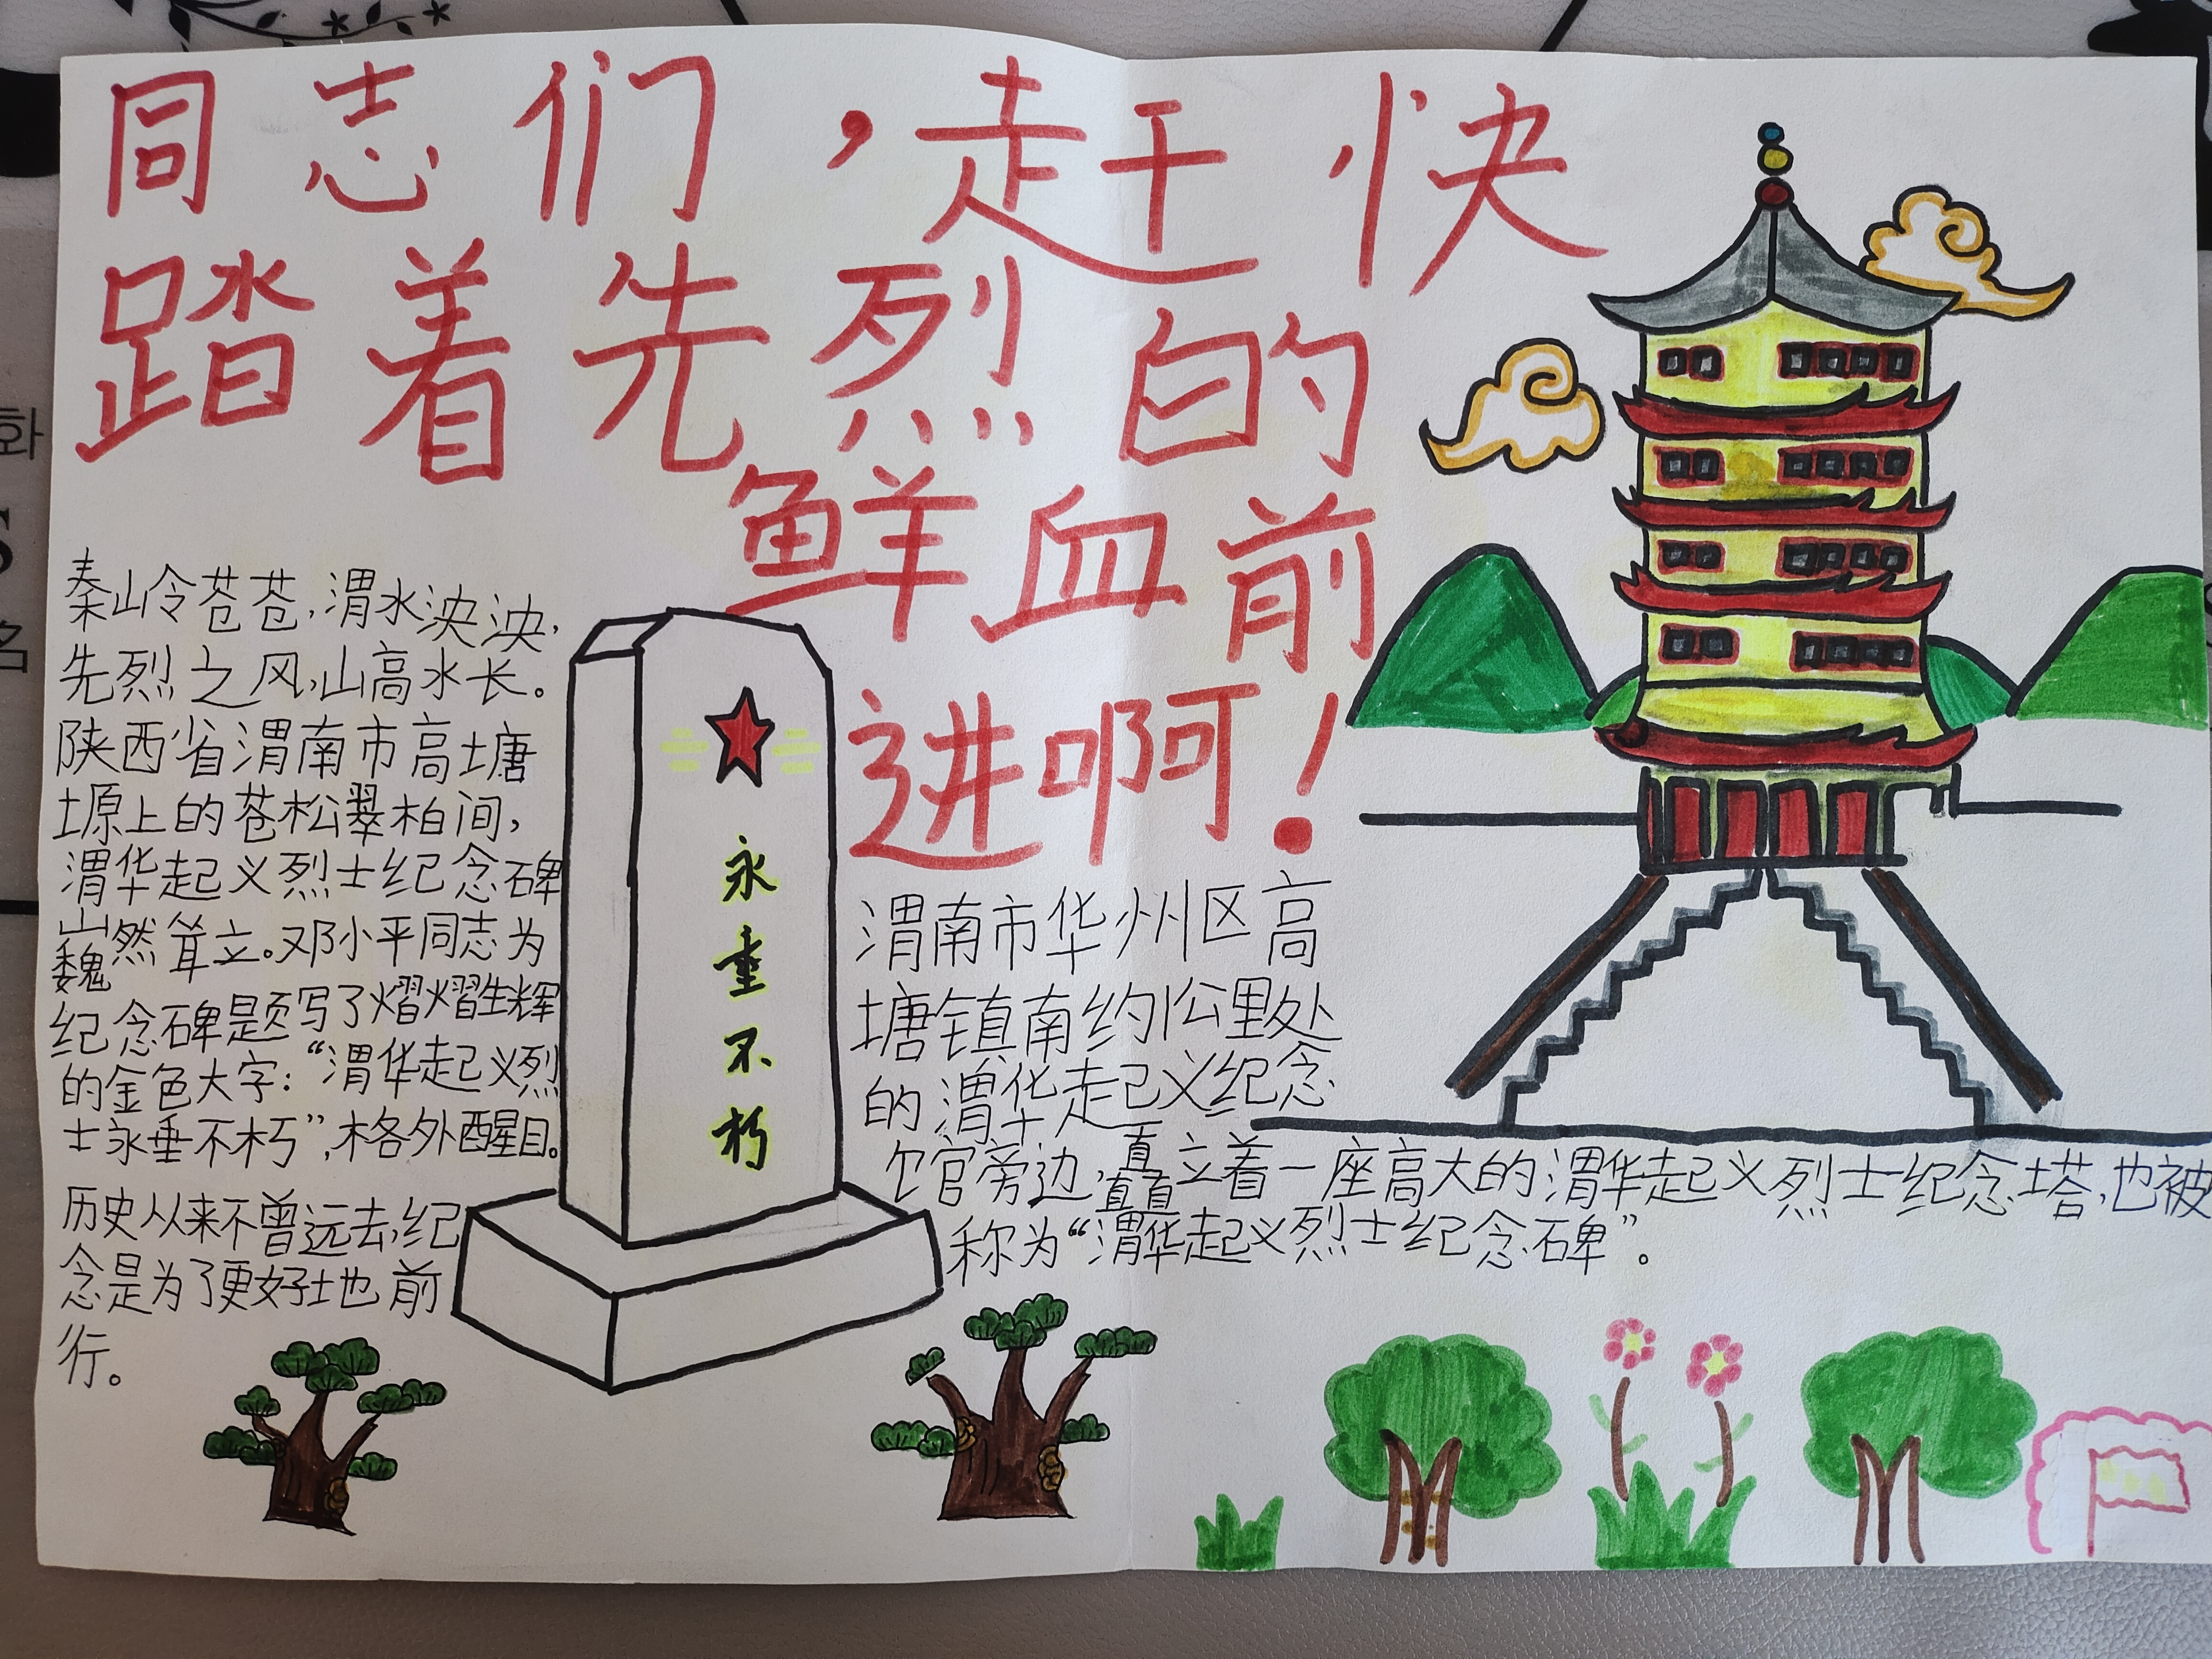 同志们，赶快
踏着先烈的
鲜血前
进啊！
秦岭苍苍，渭水泱泱，
先烈之风，山高水长。
陕西省渭南市高塘
塬上的苍松翠柏间，
渭华起义烈士纪念碑
巍然耸立。邓小平同志为
纪念碑题写了熠熠生辉
的金色大字：“渭华起义烈
士永垂不朽”，格外醒目。
历史从来不曾远去，纪
念是为了更好地前
行。
永
垂
不
朽
渭南市华州区高
塘镇南约1公里处
的渭华起义纪念
馆旁边，矗立着一座高大的渭华起义烈士纪念塔，也被
称为“渭华起义烈士纪念碑”。
화
S
名